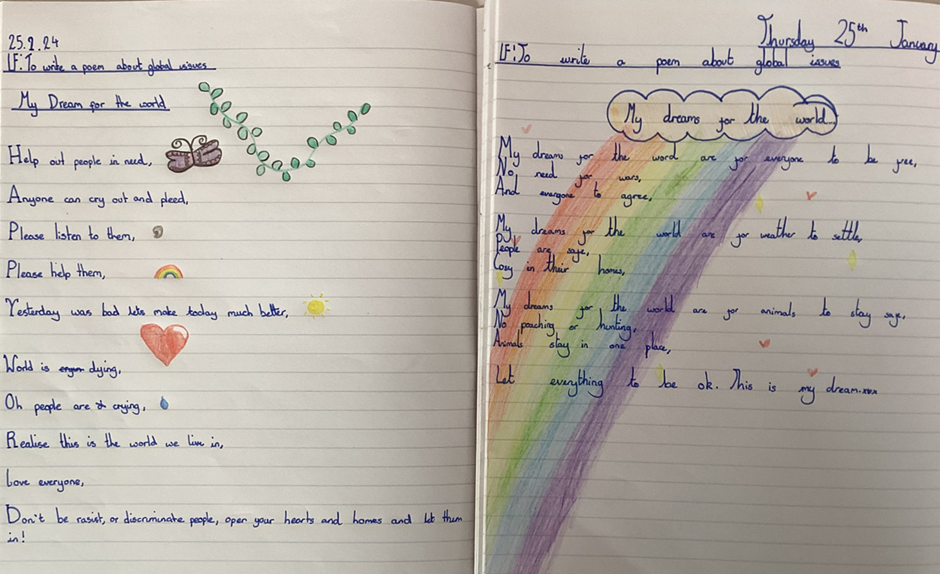 25.2.24
LF: To write a poem about global issues
My Dream for the world
Help out people in need,
Anyone can cry out and pleed,
Please listen to them,
Please help them,
Yesterday was bad lets make today much better,
World is dying,
Oh people are crying,
Realise this is the world we live in,
Love everyone,
Don't be rasist, or discriminate people, open your hearts and homes and let them
in!
Thursday 25th January
LF: To write a poem about global issues
My dreams for the world
My dreams for the word are for everyone to be free,
No need for wars,
And everyone to agree,
My dreams for the world are for weather to settle,
People are safe,
Cosy in their homes,
My dreams for the world are for animals to stay safe,
No poaching or hunting,
Animals stay in one place,
Let everything to be ok. This is my dream.xxx